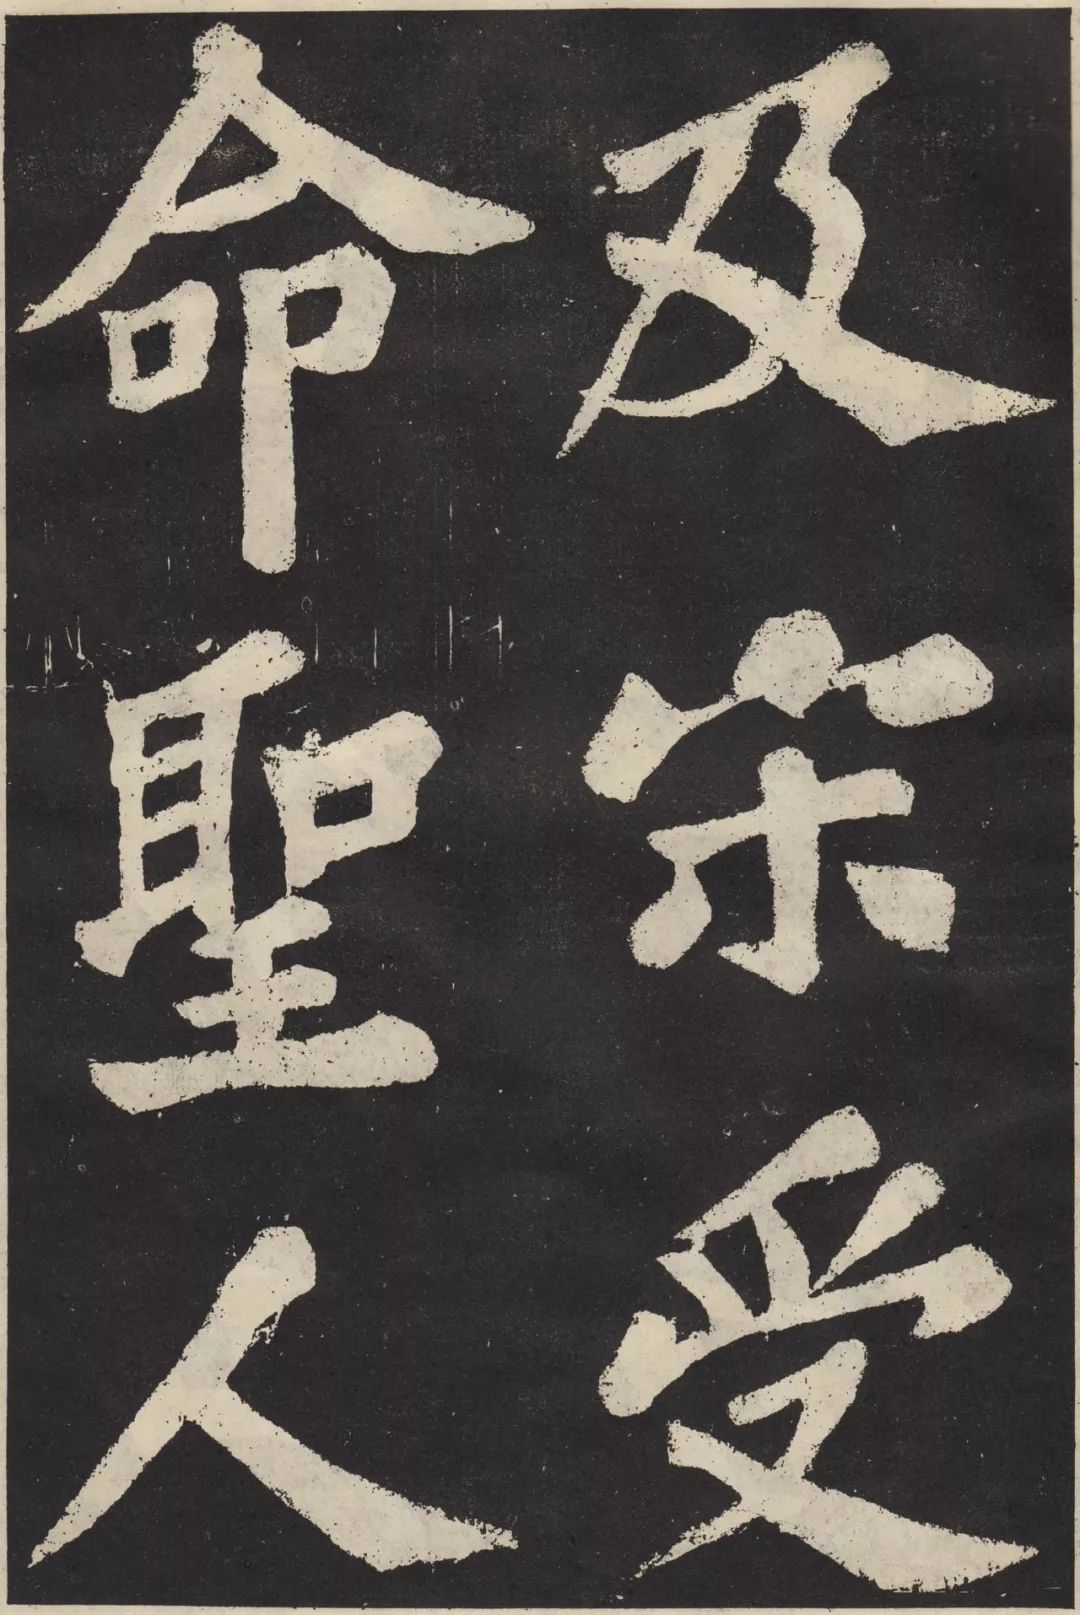 及宋受
命聖人